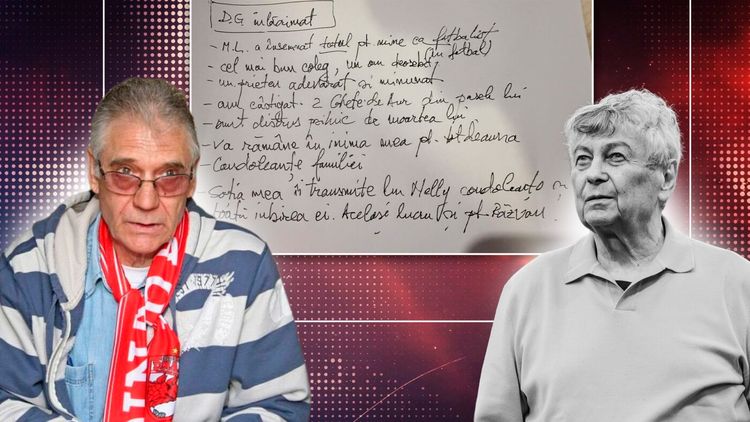 D.G îndurerat
- M.L. a însemnat totul pt. mine ca fotbalist (în fotbal)
- cel mai bun coleg, un om deosebit,
- un prieten adevărat și minunat
- am câștigat 2 Ghete de Aur din pasele lui
- sunt distrus psihic de moartea lui
- va rămâne în inima mea pt. totdeauna
Condoleanțe familiei
- Soția mea îi transmite lui Nelly condoleanțe și
toată iubirea ei. Același lucru și pt. Răzvan.
1977
DINAMO